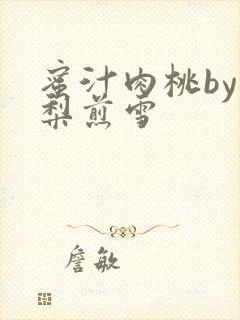 蜜汁肉桃by
梨煎雪
詹敏